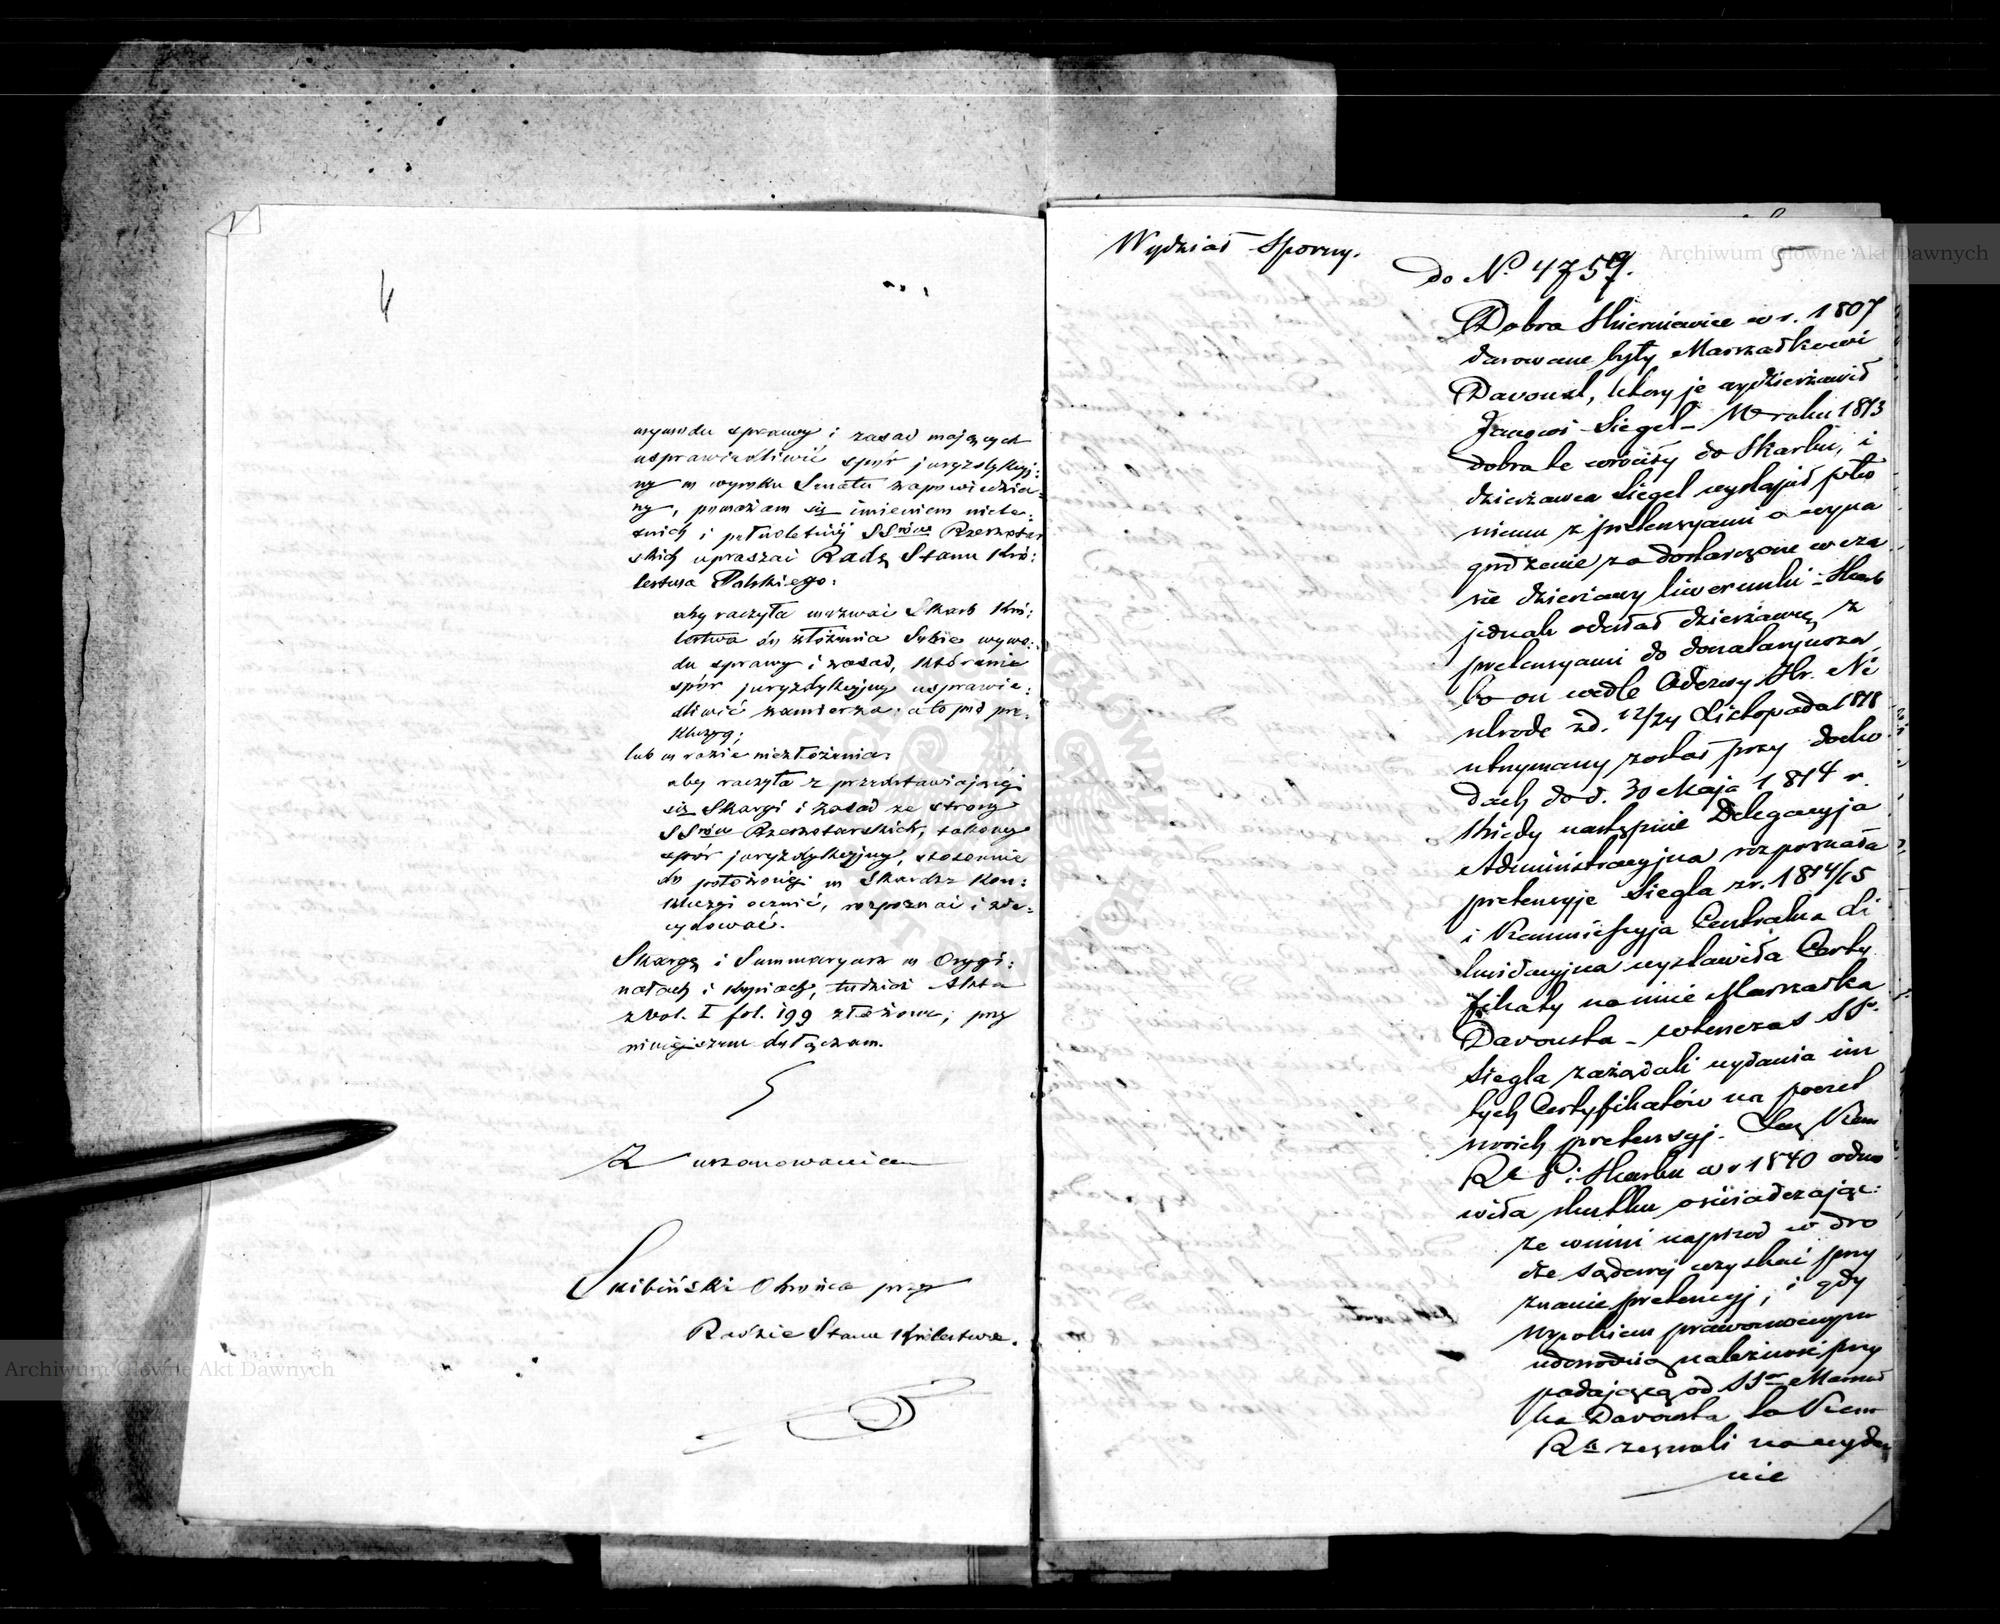 4
wywodu sprawy i zasad mających
usprawiedliwić spór juryzdykcyj:
ny w wyroku Senatu zapowiedzia:
ny, poważam się imieniem nielet:
nich i pełnoletnij SSrów Rzeszotar
skich upraszać Radę Stanu Kró:
lestwa Polskiego:
aby raczyła wezwać Skarb Kró:
lestwa do złożenia Sobie wywo:
du sprawy i zasad, któremi
spór juryzdykcyjny usprawie:
dliwić zamierza; a to pod pre:
kluzyą;
lub w razie niezłożenia:
aby raczyła z przedstawiającéj
się Skargi i zasad ze strony
SSrów Rzeszotarskich, takowy
spór juryzdykcyjny, stosownie
do położonéj w Skardze Kon:
kluzyi ocenić, rozpoznać i zde:
cydować.
Skargę i Summaryusz w Orygi:
nałach i kopiach, tudzież Akta
z vol. I fol. 199 złożone; przy
niniejszem dołączam.
Z uszanowaniem
Obrońca przy
Radzie Stanu Królestwa.
Wydział Sporny.
5
do No. 4759.
Dobra Skierniewice w r. 1807
darowane były Marszałkowi
Davoust, który je wydzierżawił
Janowi Siegel - W roku 1813
dobra te wróciły do Skarbu, i
dzierżawca Siegel wystąpił
z pretensyami o wyna
grodzenie za dostarczone w cza
sie dzierżawy liwerunki - Skarb
jednak odesłał dzierżawcę z
pretensyami do donataryusza,
bo on wedle Odezwy Hr. Ne
selrode z d. 12/24 Listopada 1818
utrzymany został przy docho
dach do d. 30 Maja 1814 r.
Kiedy następnie Delegacyja
Administracyjna rozpoznała
pretensyje Siegla z r. 1814/15
i Kommissyja Centralna Li
kwidacyjna wystawiła Certy
fikaty na imie Marszałka
Davousta - wtenczas SSr.
Siegla zażądali wydania im
tych Certyfikatów na poczet
swoich pretensyj. Lecz Kom
Ra P. i Skarbu w r 1840 odmó
wiła skutku oświadczając:
że winni naprzód w dro
dze sądowej uzyskać przy
znanie pretensyj, i gdy
wyrokiem prawomocnym
udowodnią należność przy
padającą od SSów Marszał
ka Davousta to Kom
Ra zezwoli na wyda
nie
Archiwum Główne Akt Dawnych
Archiwum Główne Akt Dawnych